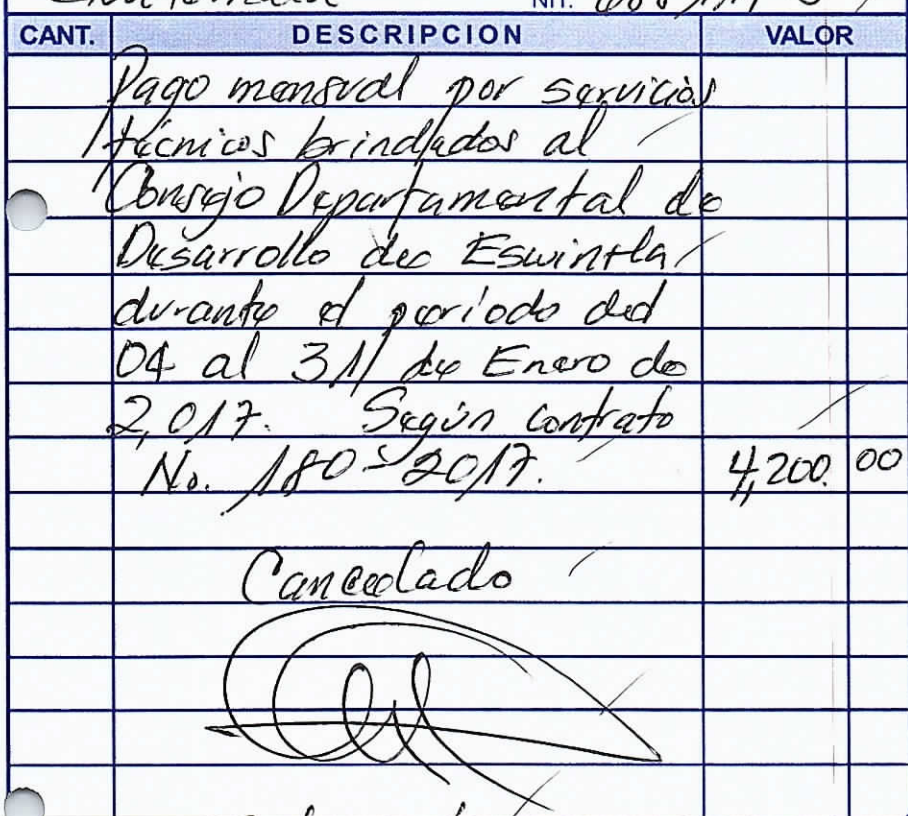 NIT.
CANT. DESCRIPCION VALOR
Pago mensual por servicios
técnicos brindados al
Consejo Departamental de
Desarrollo de Escuintla
durante el periodo del
04 al 31 de Enero de
2,017. Según contrato
No. 180-2017. 4,200.00
Cancelado